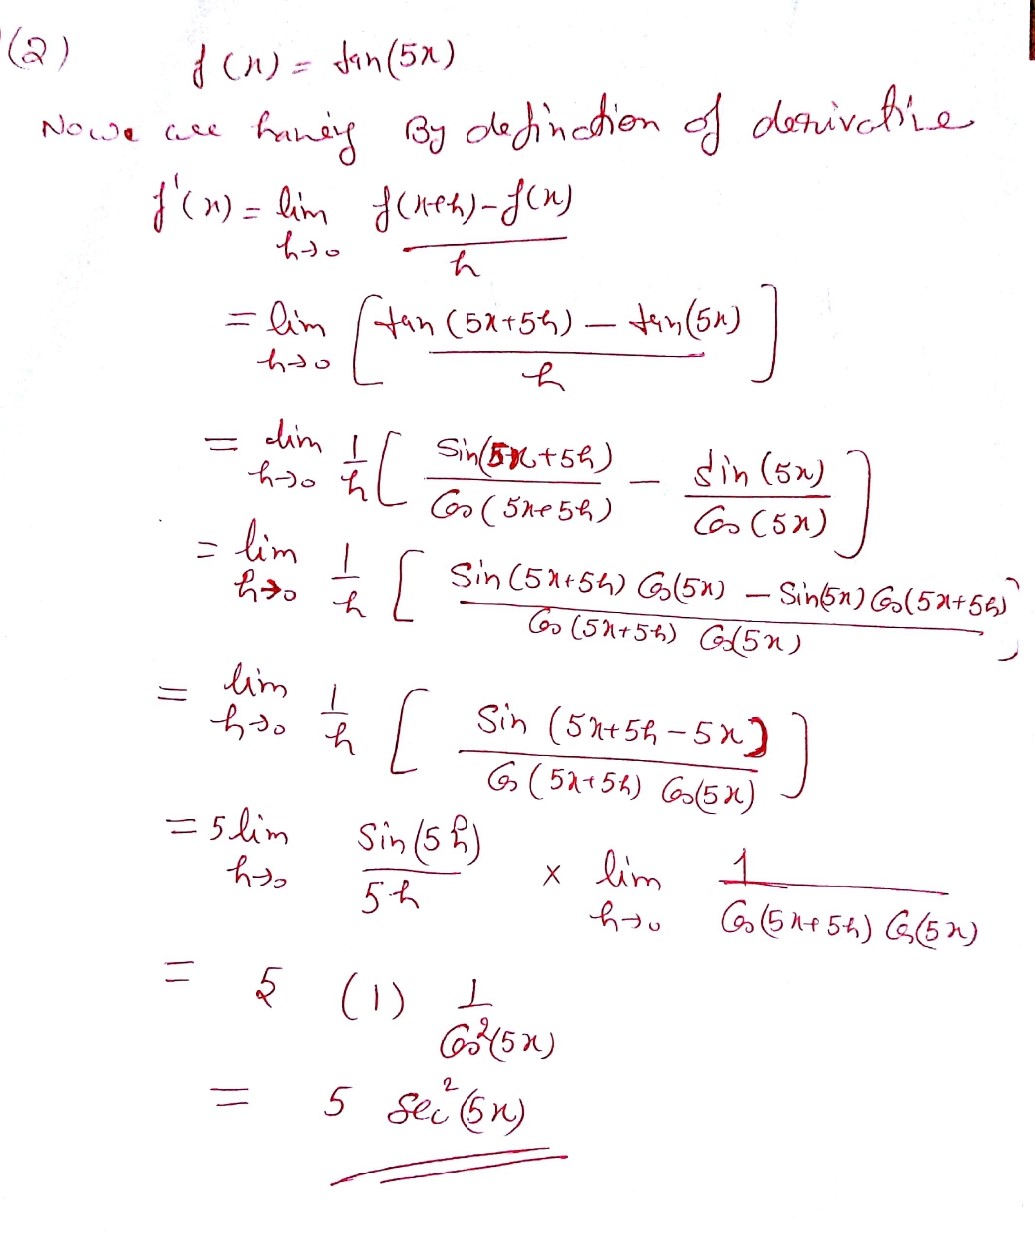 (2) f(x) = tan(5x)
Now we are having By definction of derivative
f'(x) = lim h→0 f(x+h)-f(x) / h
= lim h→0 [ tan (5x+5h) — tan(5x) / h ]
= lim h→0 1/h [ Sin(5x+5h) / Cos(5x+5h) — Sin(5x) / Cos(5x) ]
= lim h→0 1/h [ Sin(5x+5h) Cos(5x) — Sin(5x) Cos(5x+5h) / Cos(5x+5h) Cos(5x) ]
= lim h→0 1/h [ Sin (5x+5h-5x) / Cos(5x+5h) Cos(5x) ]
= 5 lim h→0 Sin(5h) / 5h × lim h→0 1 / Cos(5x+5h) Cos(5x)
= 5 (1) 1 / Cos²(5x)
= 5 Sec²(5x)